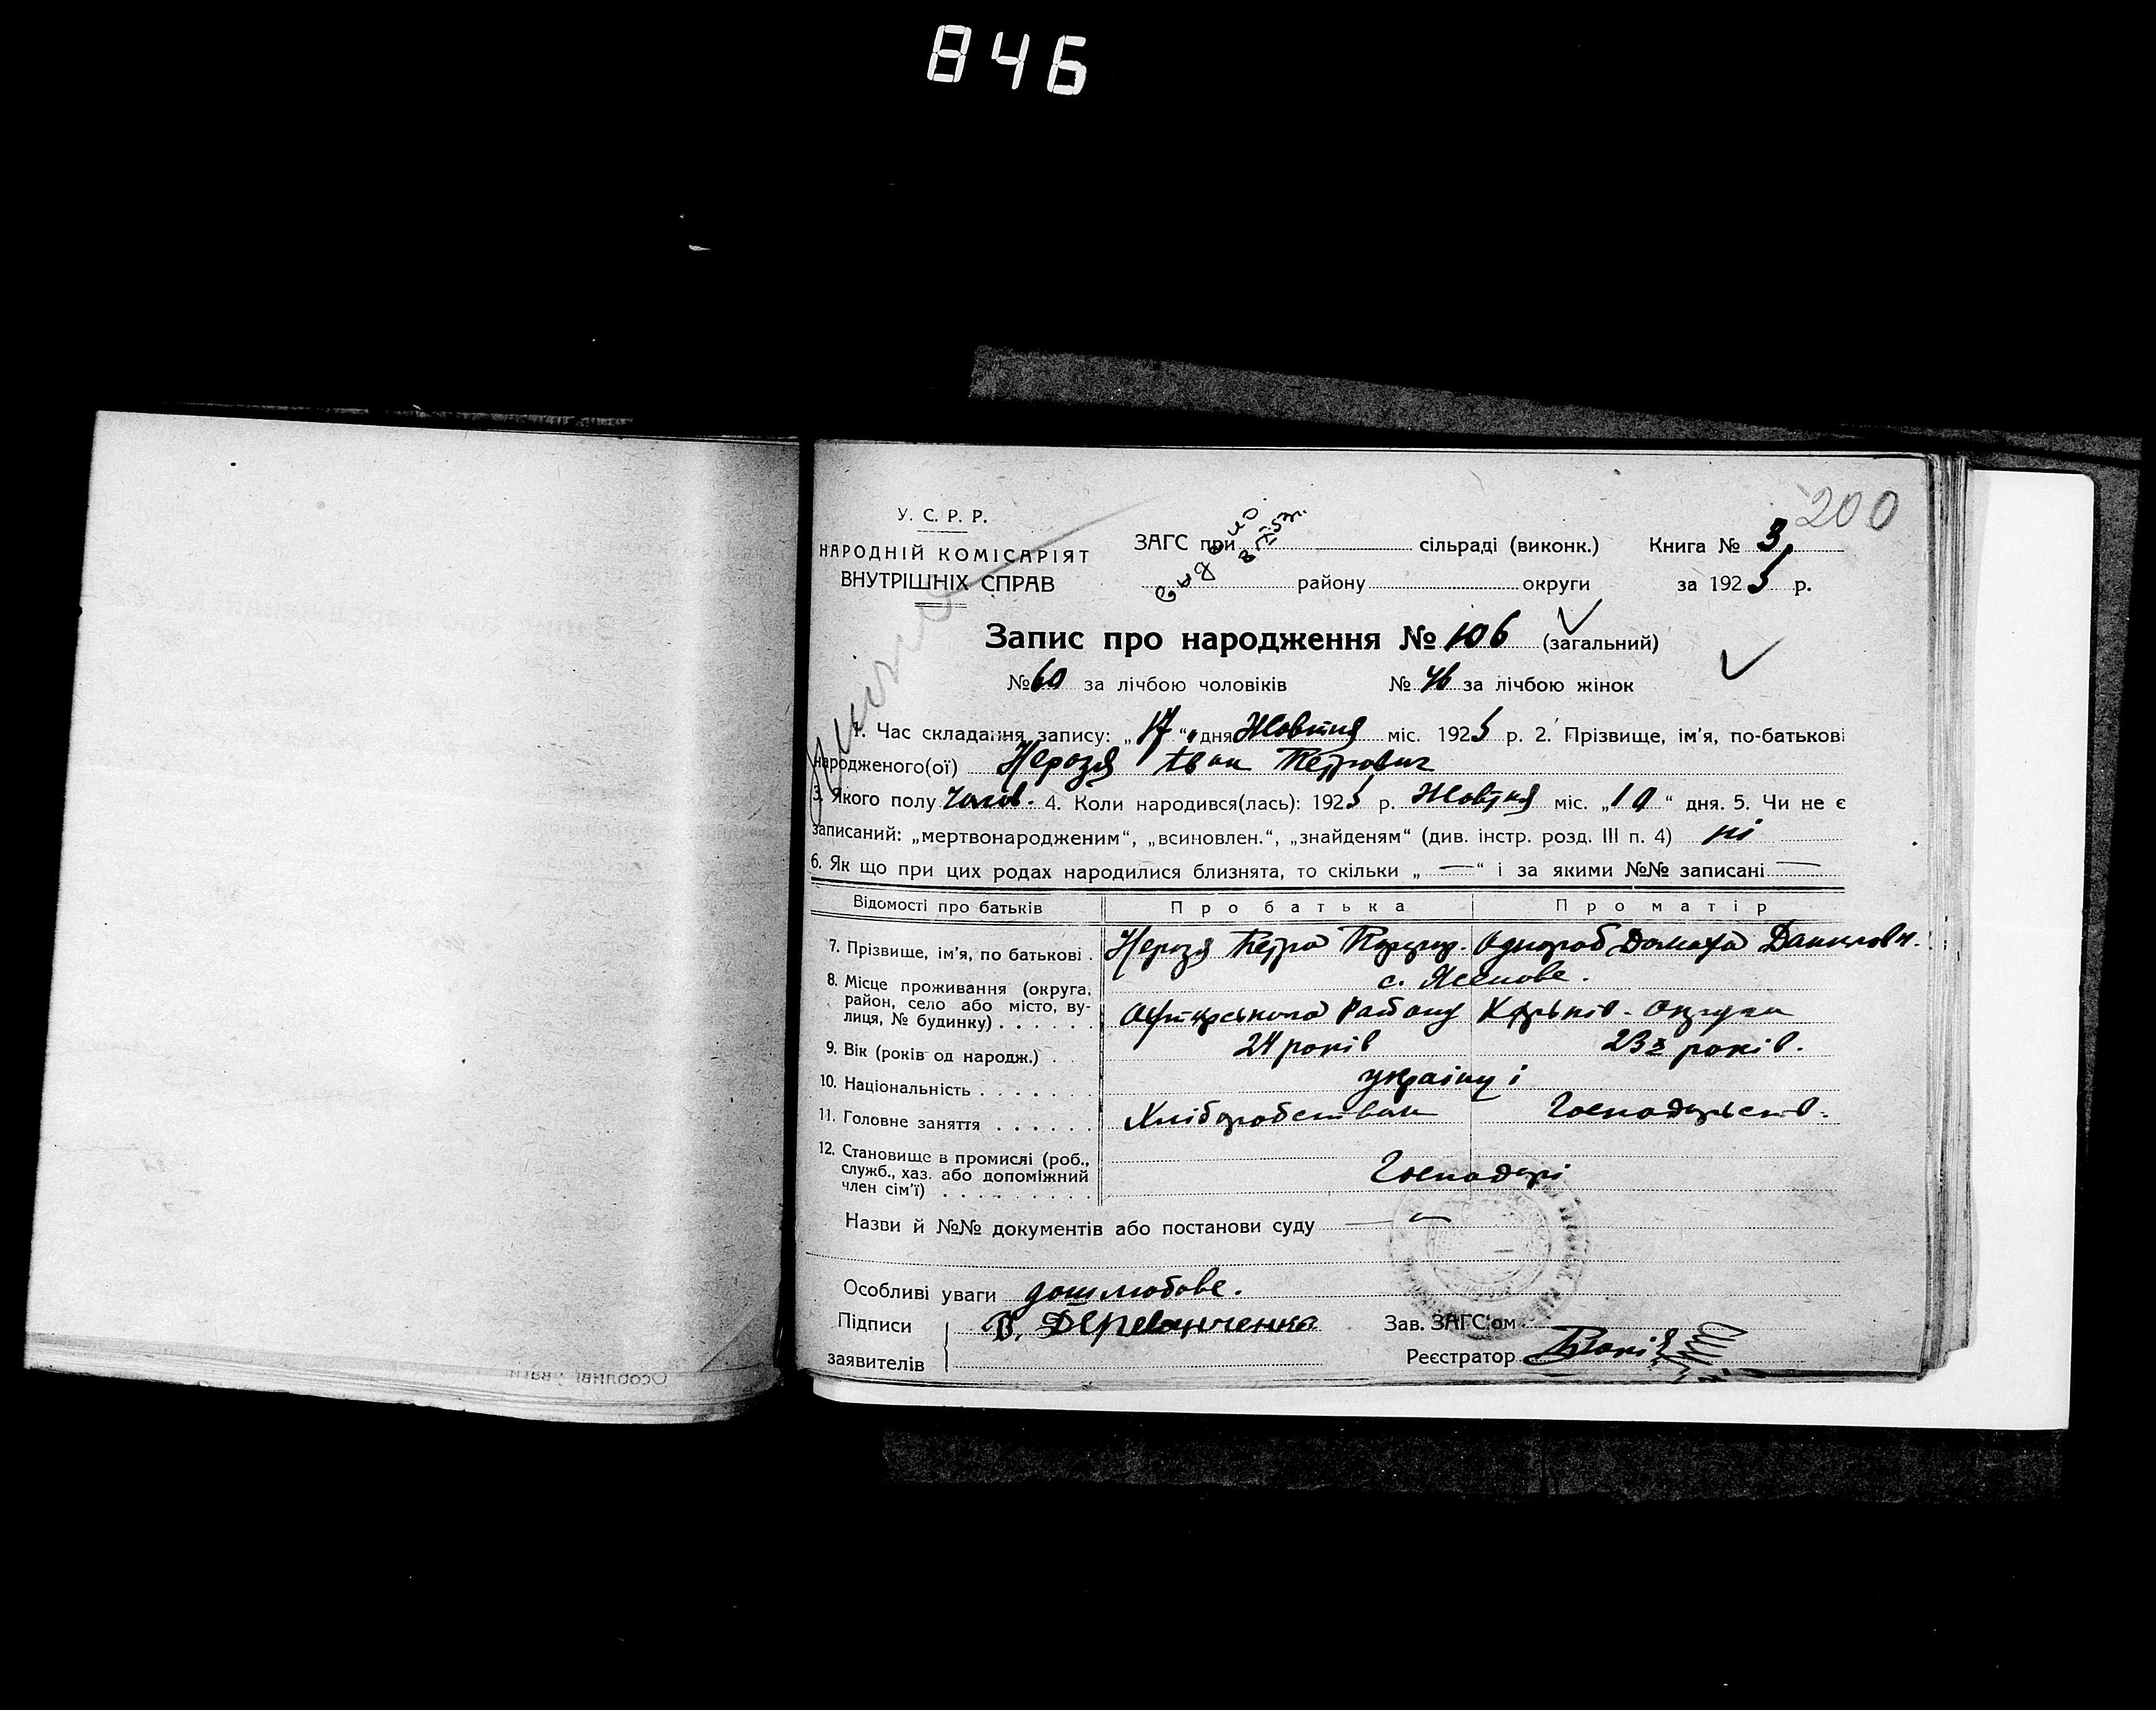 846
200
У. С. Р. Р.
НАРОДНІЙ КОМІСАРІЯТ
ВНУТРІШНІХ СПРАВ
ЗАГС при сільраді (виконк.)
району округи
Книга № 3
за 1925 р.
Запис про народження № 106 (загальний)
№ 60 за лічбою чоловіків № 46 за лічбою жінок
1. Час складання запису: „17“ дня Жовтня міс. 1925 р. 2. Прізвище, ім’я, по-батькові
народженого(ої) Нерозя Іван Петрович
3. Якого полу Чолов. 4. Коли народився(лась): 1925 р. Жовтня міс. „10“ дня. 5. Чи не є
записаний: „мертвонародженим“, „всиновлен.“, „знайденям“ (див. інстр. розд. III п. 4) ні
6. Як що при цих родах народилися близнята, то скільки „—“ і за якими №№ записані —
Відомості про батьків Про батька Про матір
7. Прізвище, ім’я, по батькові . Нерозя Петро Однороб Домаха Даниловн.
с. Ясенове.
8. Місце проживання (округа,
район, село або місто, ву-
лиця, № будинку) . . . . . . Охтирського Району Харьків. Округи
9. Вік (років од народж.) . 24 років 23 років.
10. Національність . . . . . . . україці
11. Головне заняття . . . . . . Хліборобством Господарств.
12. Становище в промислі (роб.,
служб., хаз. або допоміжний
член сім’ї) . . . . . . . . . Господарі
Назви й №№ документів або постанови суду —
Особливі уваги дошлюбове.
Підписи В. Дереванченко Зав. ЗАГС’ом
заявителів Реєстратор
Особливі уваги